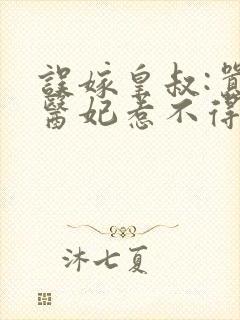 誤嫁皇叔:囂
醫妃惹不得
沐七夏